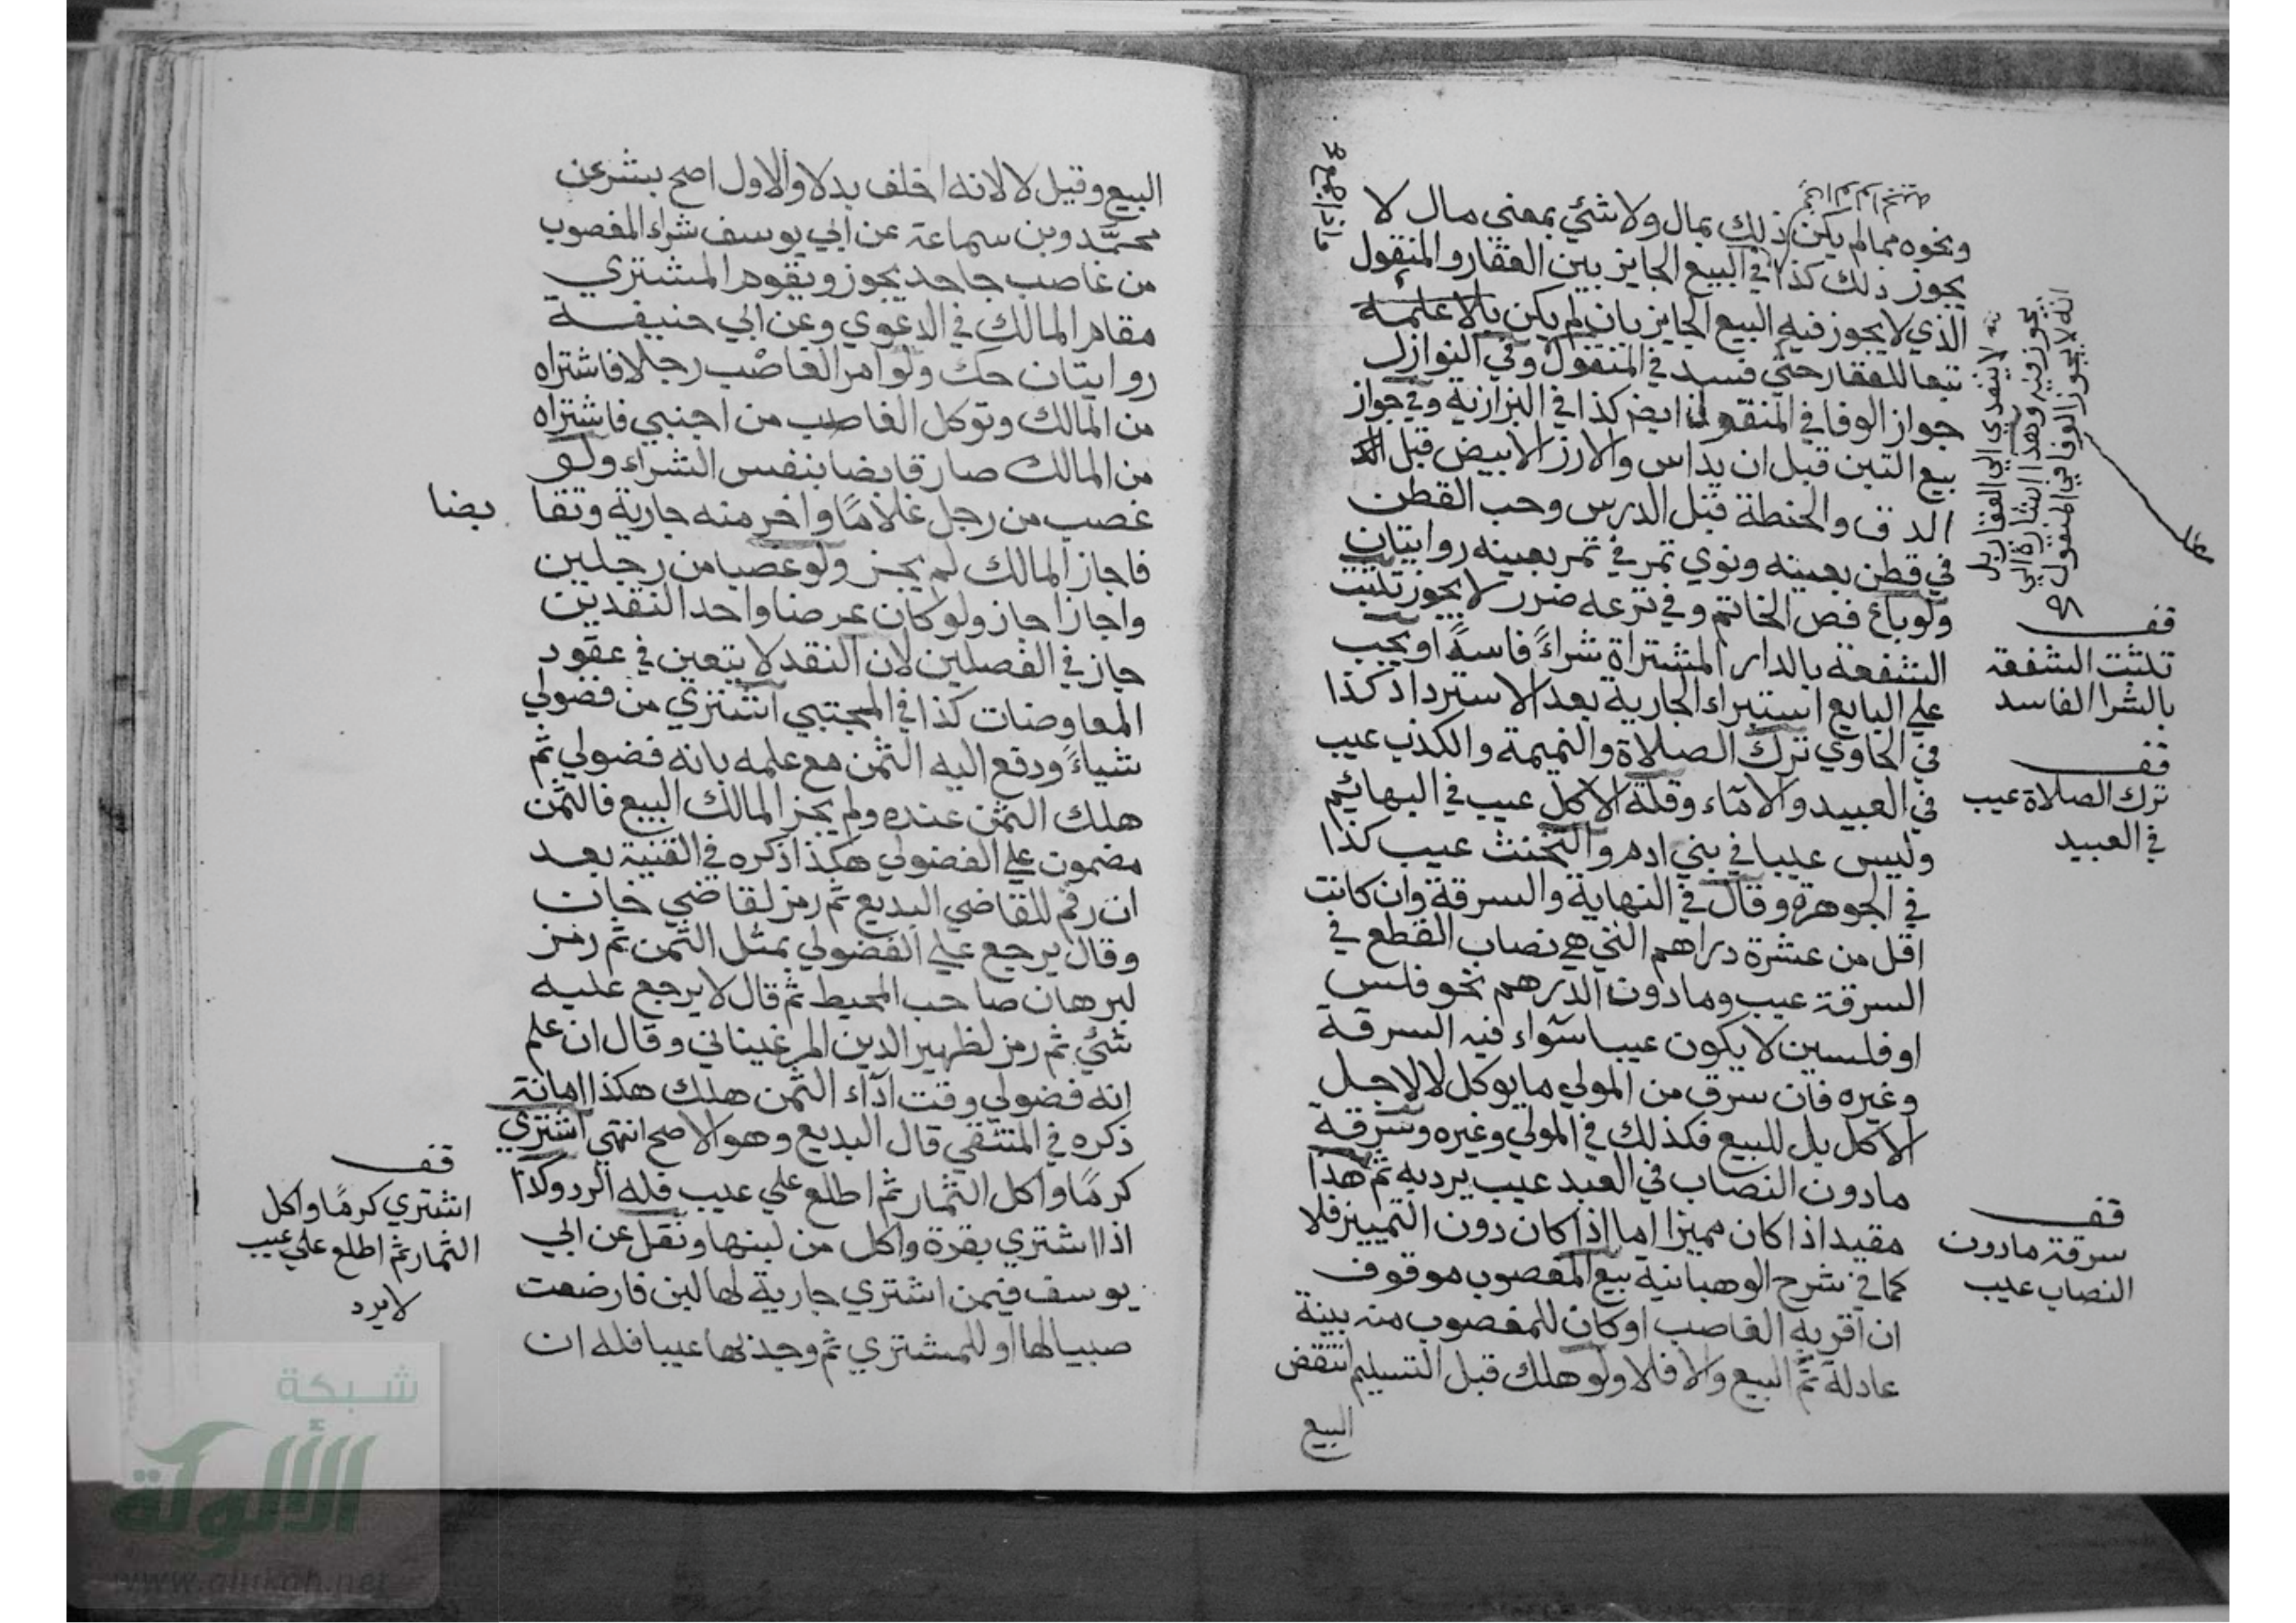 ونحوه مما لم يكن ذلك بمال ولا شئي بمعني مال لا
يجوز ذلك كذا في البيع الجايز بين العقار والمنقول
الذي لا يجوز فيه البيع الجايز بان لم يكن بالاعلمه
تبعا للعقار حتي فسد في المنقول وفي النوازل
جواز الوفا في المنقول ايضر كذا في البزازية وفي جواز
بيع التبن قبل ان يداس والارز الابيض قبل
الدق والحنطة قبل الدرس وحب القطن
في قطن بعينه ونوي تمر في تمر بعينه روايتان
ولو باع فص الخاتم وفي نزعه ضرر لا يجوز تثبت
الشفعة بالدار المشتراة شراءً فاسداً ويجب
علي البايع استبراء الجارية بعد الاسترداد كذا
في الحاوي ترك الصلاة والنميمة والكذب عيب
في العبيد والامآء وقلة الاكل عيب في البهائيم
وليس عيبا في بني ادم والتخنث عيب كذا
في الجوهرة وقال في النهاية والسرقة وان كانت
اقل من عشرة دراهم التي هي نصاب القطع في
السرقة عيب وما دون الدرهم نحو فلس
او فلسين لا يكون عيبا سوآء فيه السرقة
وغيره فان سرق من المولي ما يوكل لا لاجل
الاكل بل للبيع فكذلك في المولي وغيره وسرقة
مادون النصاب في العبد عيب يرد به ثم هذا
مقيد اذا كان مميزا اما اذا كان دون التمييز فلا
كما في شرح الوهبانية بيع المغصوب موقوف
ان اقر به الغاصب او كان للمغصوب منه بينة
عادلة تم البيع والا فلا ولو هلك قبل التسليم انتقض
البيع
لا يتعدي الي العقار بل
يجوز فيه وهذا اشارة الي
انه لا يجوز الوفا في المنقول
قف
تثبت الشفقة
بالشرا الفاسد
قف
ترك الصلاة عيب
في العبيد
قف
سرقة مادون
النصاب عيب
البيع وقيل لا لانه اخلف بدلا والاول اصح بشر عن
محمَّد وبن سماعة عن ابي يوسف شراء المغصوب
من غاصب جاحد يجوز ويقوم المشتري
مقام المالك في الدعوي وعن ابي حنيفة
روايتان حك ولو امر الغاصب رجلا فاشتراه
من المالك وتوكل الغاصب من اجنبي فاشتراه
من المالك صار قابضا بنفس الشراء ولو
غصب من رجل غلامًا واخر منه جارية وتقا بضا
فاجاز المالك لم يجز ولو غصبا من رجلين
واجازا جاز ولو كان عرضا واحد النقدين
جاز في الفصلين لان النقد لا يتعين في عقود
المعاوضات كذا في المجتبي اشتري من فضولي
شياءً ودفع اليه الثمن مع علمه بانه فضولي ثم
هلك الثمن عنده ولم يجز المالك البيع فالثمن
مضمون علي الفضولي هكذا ذكره في القنية بعد
ان رقم للقاضي البديع ثم رمز لقاضي خان
وقال يرجع علي الفضولي بمثل الثمن ثم رمز
لبرهان صاحب المحيط ثم قال لا يرجع عليه
شئي ثم رمز لظهير الدين المرغيناني وقال ان علم
انه فضولي وقت ادآء الثمن هلك هكذا امانة
ذكره في المنتقي قال البديع وهو الاصح انتهي اشتري
كرمًا واكل الثمار ثم اطلع علي عيب فله الرد وكذا
اذا اشتري بقرة واكل من لبنها ونقل عن ابي
يوسف فيمن اشتري جارية لها لبن فارضعت
صبيا لها او للمشتري ثم وجد بها عيبا فله ان
قف
اشتري كرمًا واكل
الثمار ثم اطلع علي عيب
لا يرد
شبكة
الألوكة
www.alukah.net